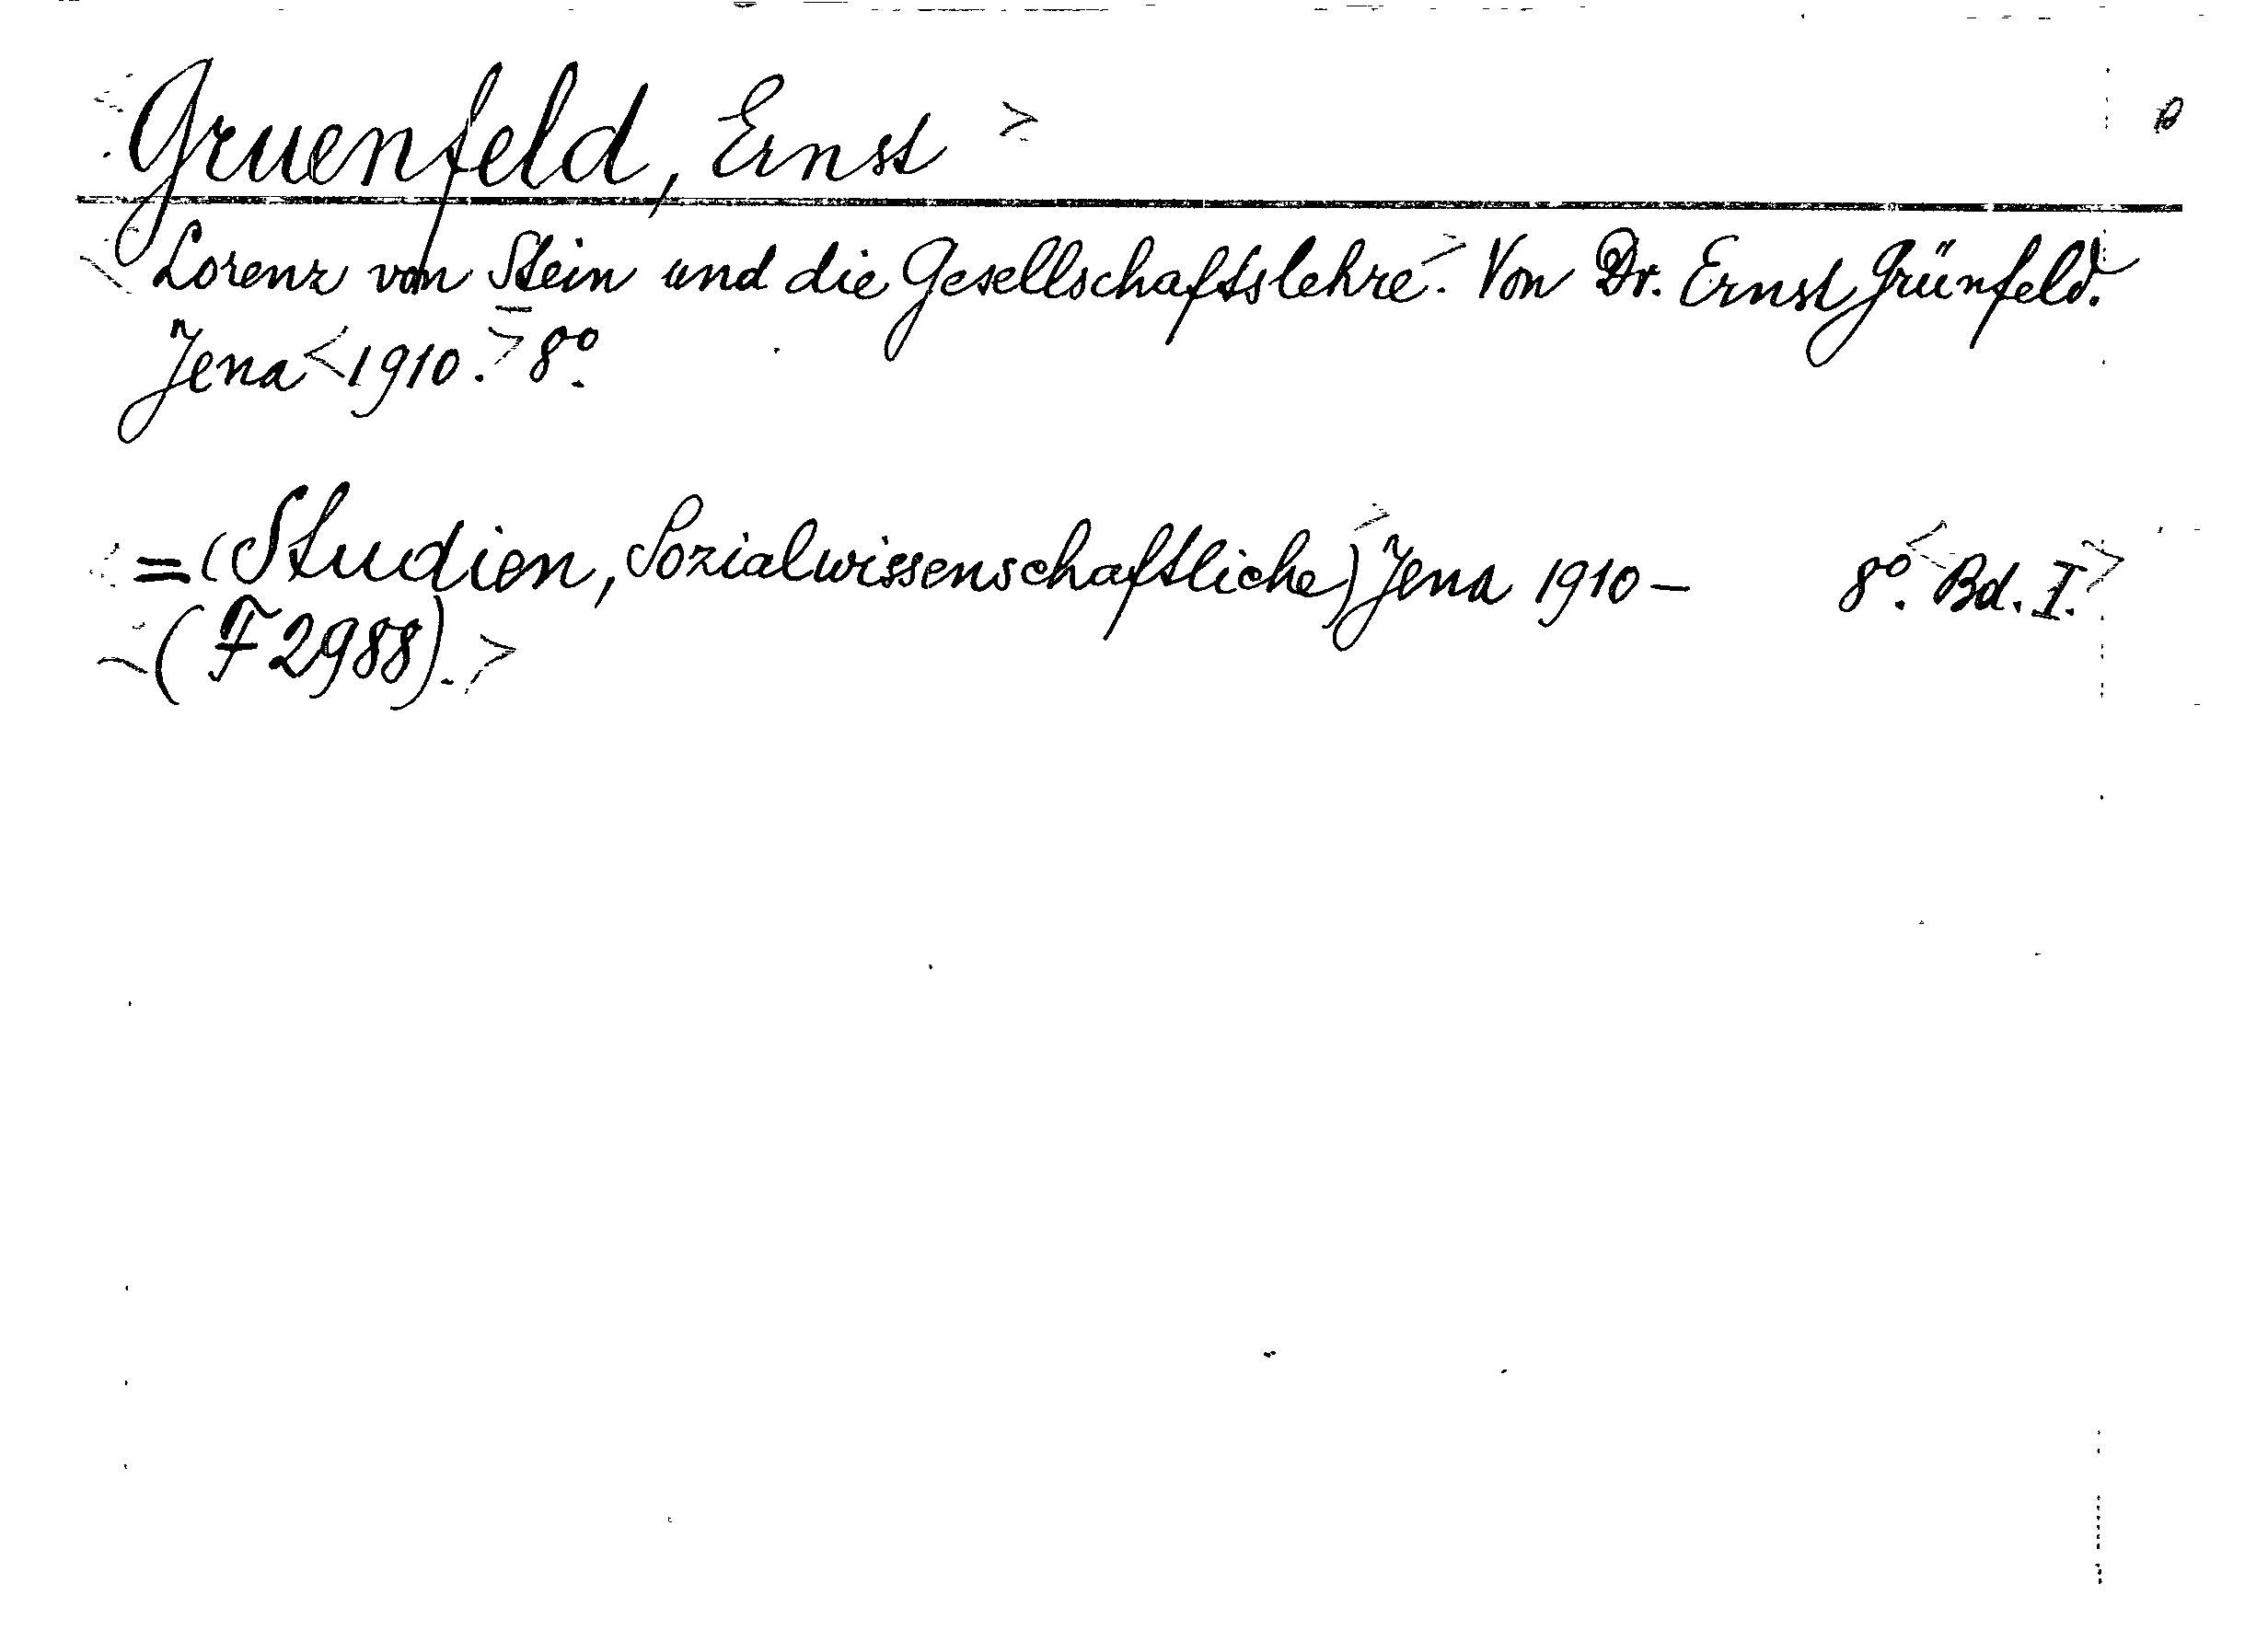 Gruenfeld, Ernst
Lorenz von Stein und die Gesellschaftslehre. Von Dr. Ernst Grünfeld.
Jena <1910.> 8º.
=(Studien, Sozialwissenschaftliche) Jena 1910– 8º. Bd. I.
(F 2988).